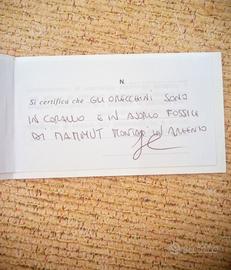 N.
Si certifica che GLI ORECCHINI SONO
IN CORALLO E IN AVORIO FOSSILE
DI MAMMUT MONTATI IN ARGENTO